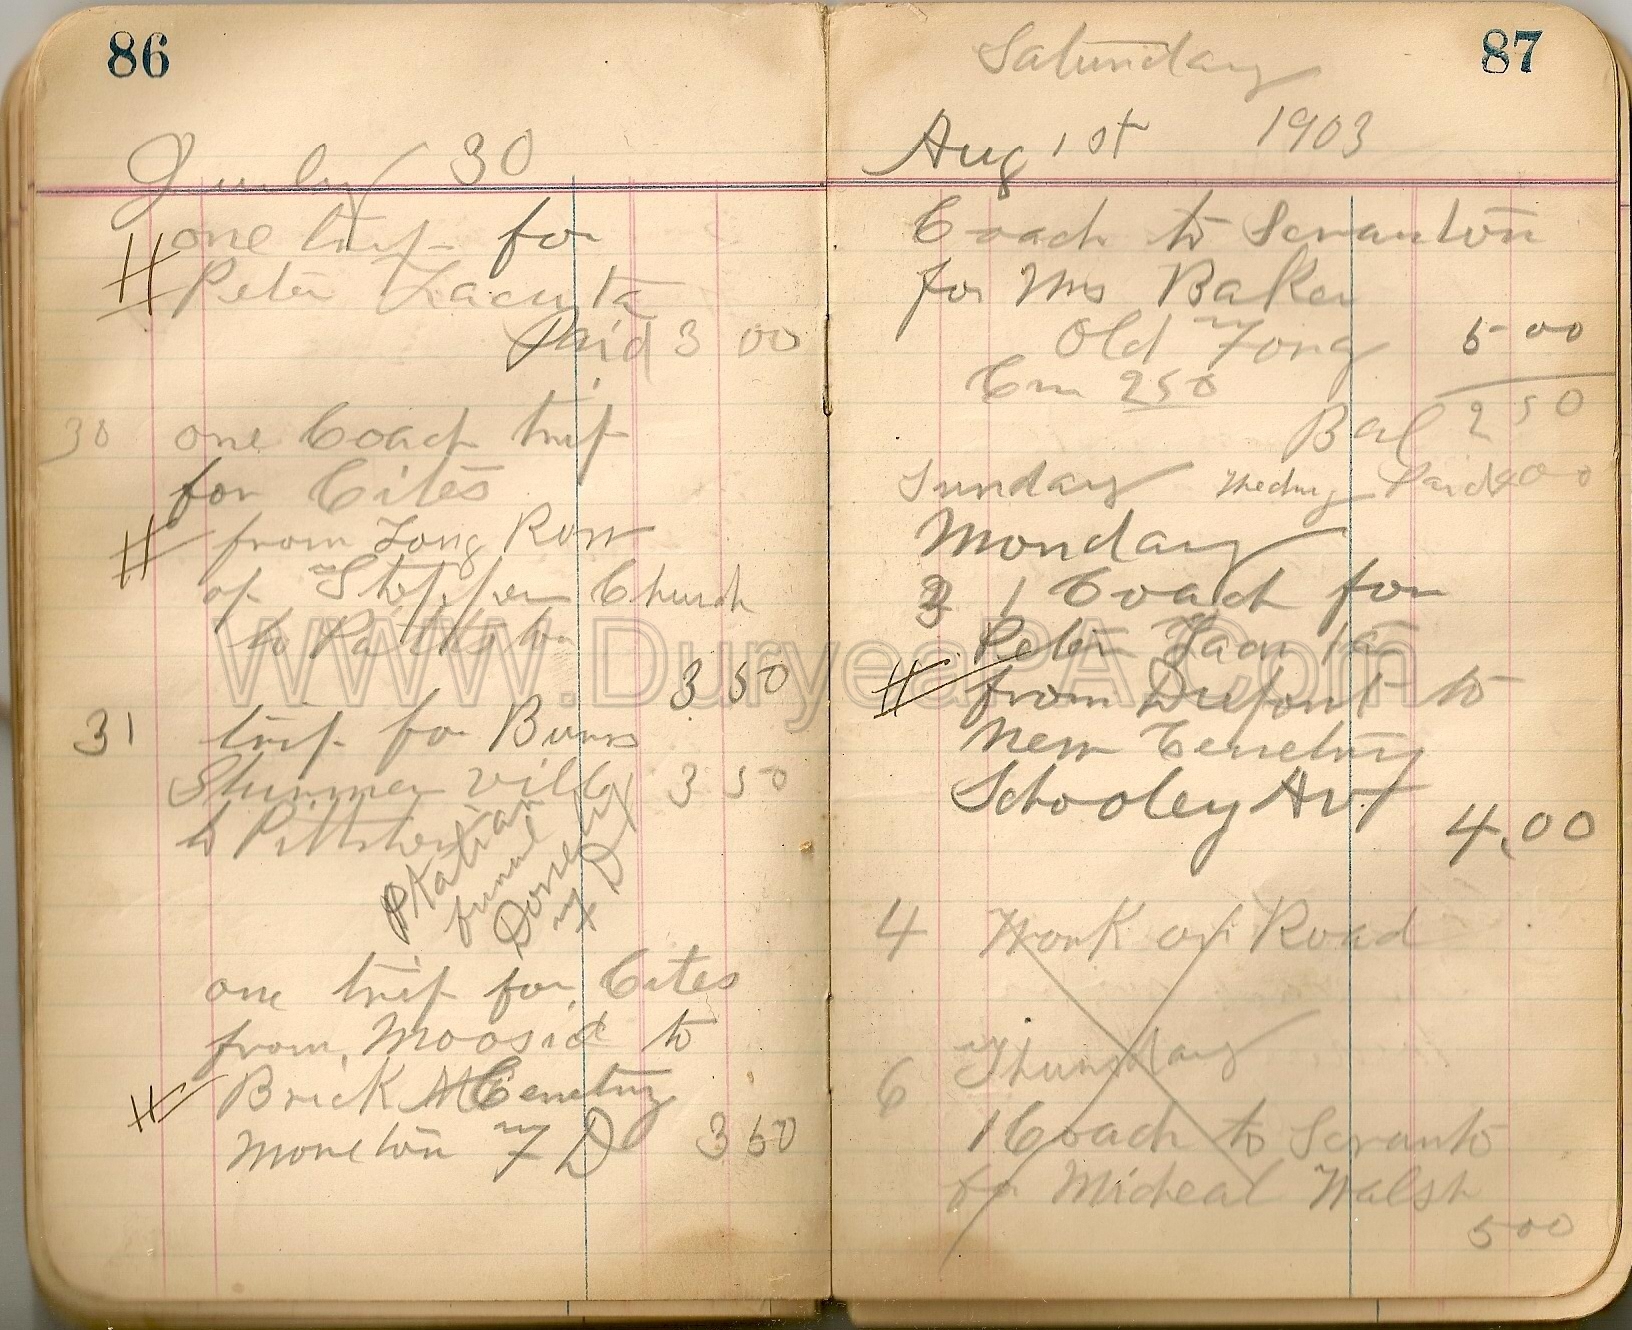 86
July 30
one trip for
Peter Lacuta
Paid 3 00
30 one Coach trip
for Cites
from Long Row
of Stephen Church
to Pittston
3 50
31 trip for Burns
3 50
to Pittston
Italian
funnel
one trip for Cites
from Moosic to
Brick Cemetry
7 D 3 50
Saturday
87
Aug 1st 1903
Coach to Scranton
for Mrs Baker
Old Forg 5 00
250
Bal 2 50
Sunday Paid
Monday
3 1 Coach for
Peter Lacuta
from Dupont to
New Cemetry
Schooley Av
4.00
4 Work on Road
Thursday
6
1 Coach to Scranto
for Micheal Walsh
500
WWW.DuryeaPA.Com